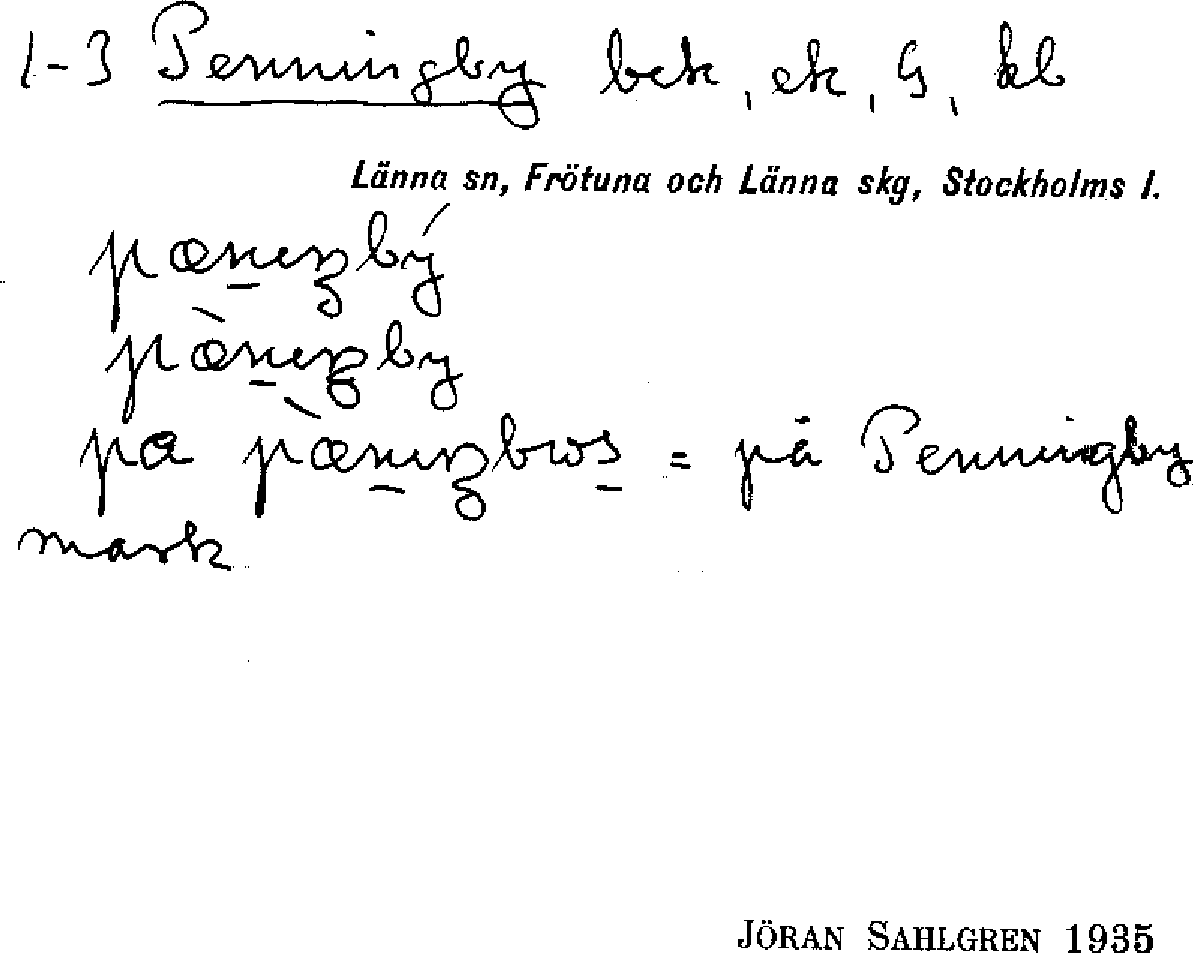 1-3 Penningby bck, ek, G, kl
Länna sn, Frötuna och Länna skg, Stockholms l.
pænıŋbý
pæ̀nıŋby
pa pæ̀nıŋbωs = på Penningby
mark
JÖRAN SAHLGREN 1935